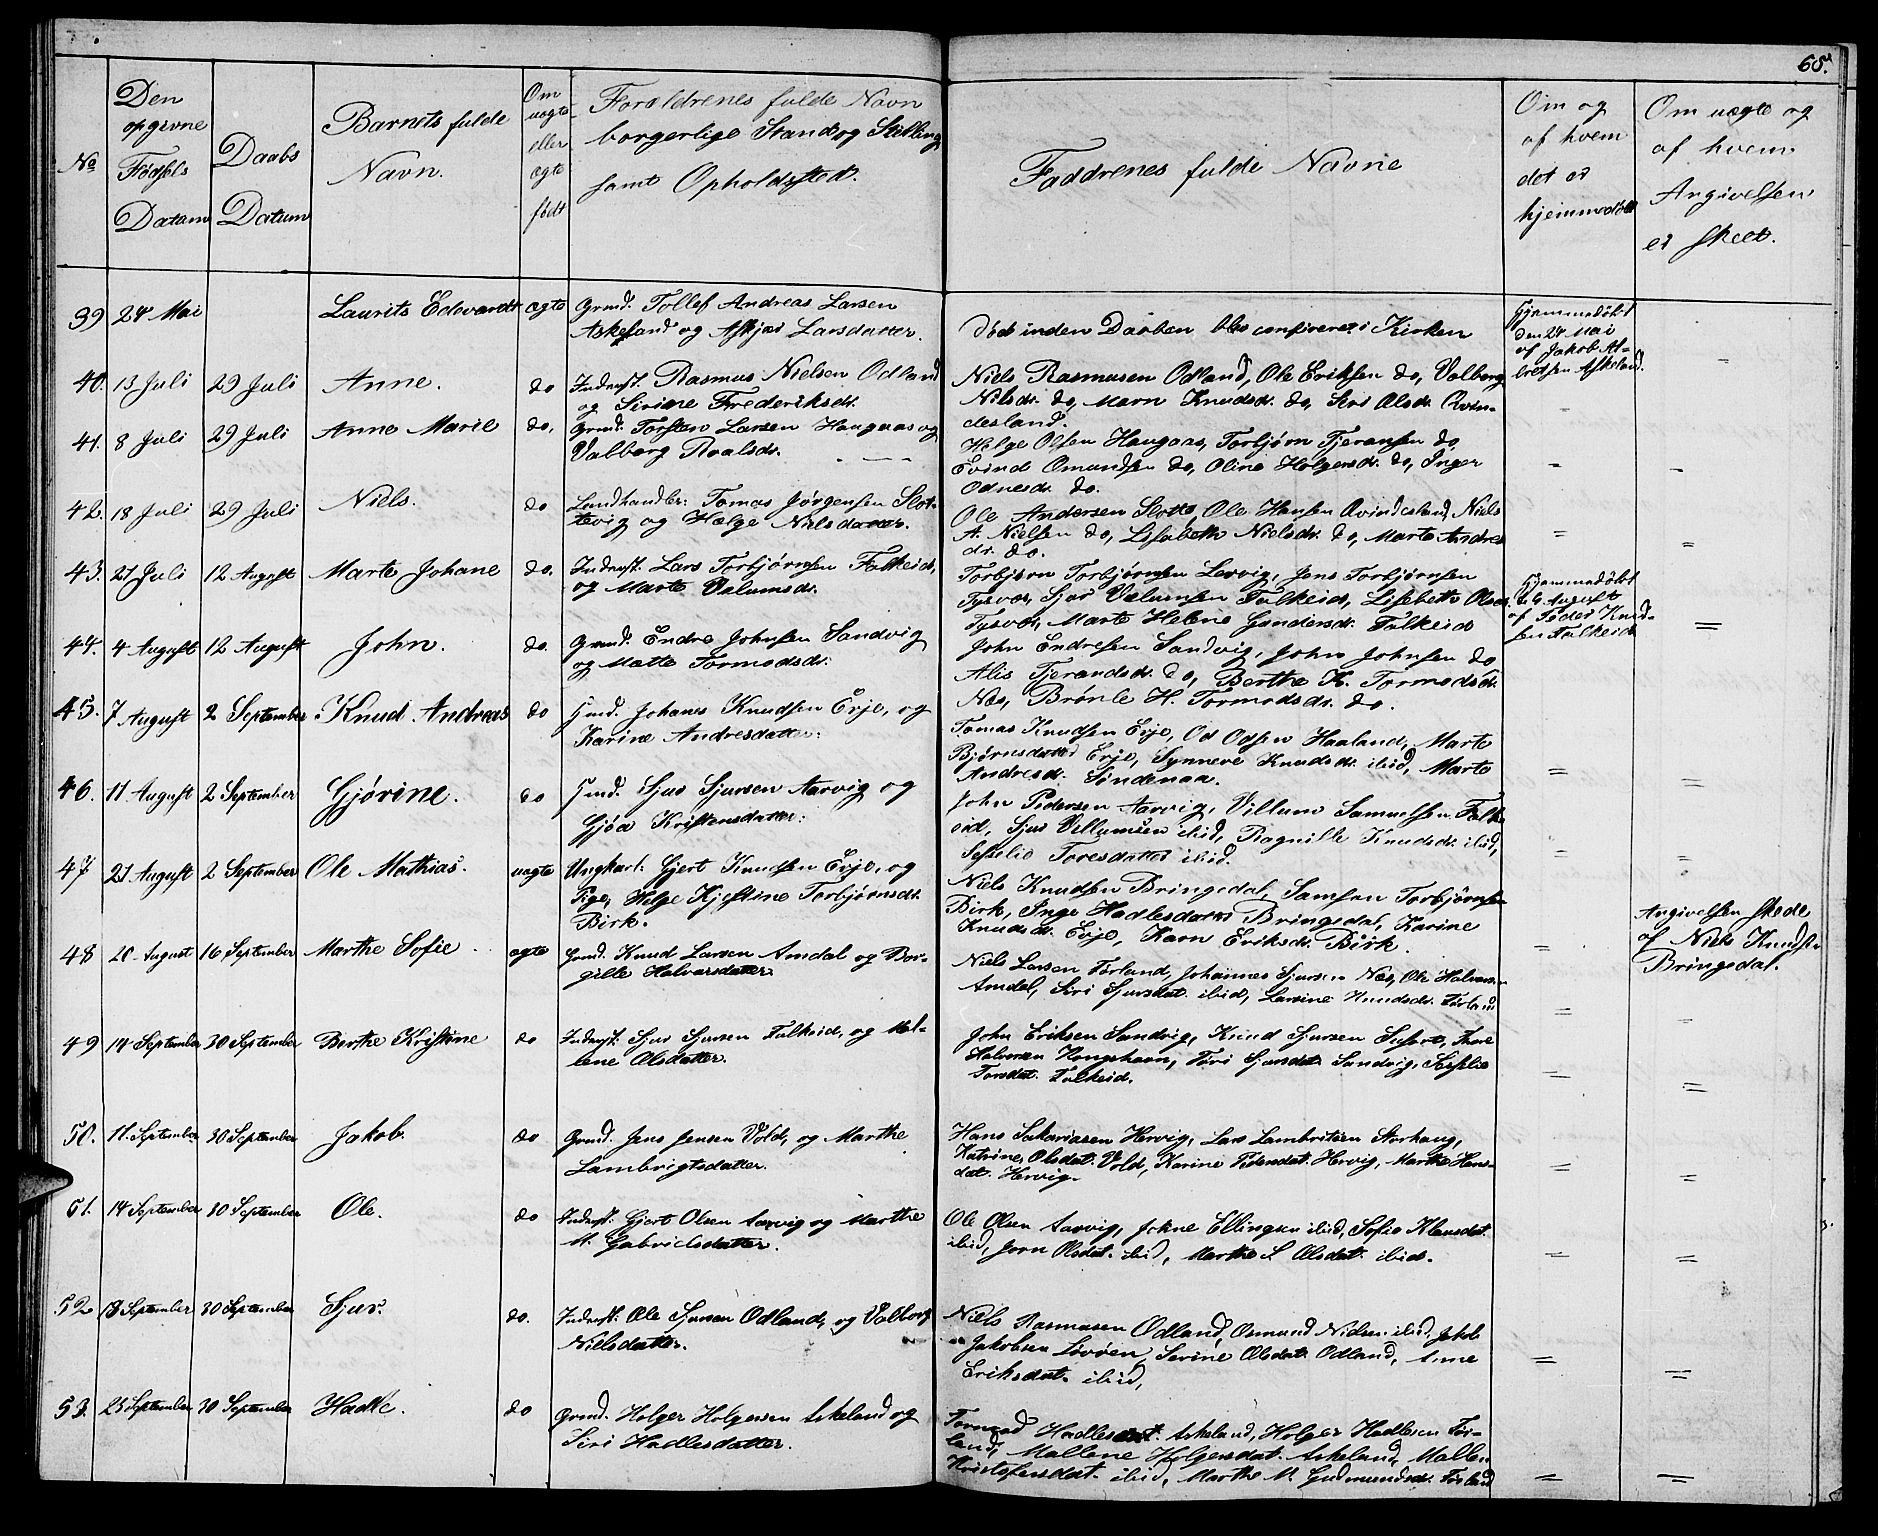 65.
No
Den
opgivne
Fødsels
Datum
Daabs
Datum
Barnets fulde
Navn.
Om
uægte
eller
ægte
født
Forældrenes fulde Navn
borgerlige Stand og Stilling
samt Opholdssted.
Faddrenes fulde Navne
Om og
af hvem
det er
hjemmedøbt
Om uægte og
af hvem
Angivelsen
er skeet.
39 24 Mai Laurits Edevardt ægte Grmd. Tollef Andreas Larsen
Askeland og Larsdatter.
Død inden Daaben blev i Kirken
Hjemmedøbt
den 24 Mai
af Jakob Al-
bretsen Askeland.
40. 13 Juli 29 Juli Anne. do Inderst. Rasmus Nielsen Odland
og Serine Frederiksdr.
Niels Rasmusen Odland, Ole Eriksen do, Valborg
Nilsdr. do, Marn Knudsdr. do, Siri Olsdr. Qvin-
desland.
41. 8 Juli 29 Juli Anne Marie do. Grmd. Torsten Larsen Haugaas og
Valborg Roalsdr.
Helge Olsen Haugaas, Torbjørn Tjeransen do,
Evind Omundsen do, Oline Holgersdr. do, Inger
Odnesdr. do.
42. 18 Juli 29 Juli Niels. do Landhandler: Tomas Jørgensen Slot-
tevig og Helge Nielsdatter.
Ole Andersen Slotte, Ole Hansen Qvindesland, Niels
A. Nielsen do, Lisabeth Nielsdr. do, Marte Andres
dr. do.
43. 27 Juli 12 August Marte Johane do. Inderst. Lars Torbjørnsen Falkeid,
og Marte Valumsdr.
Torbjørn Torbjørnsen Lervig, Jens Torbjørnsen
Tysvær, Sjur Vælumsen Falkeid, Lisebeth Olsdr.
Tysvær, Marte Helene Gundersdr. Falkeid
Hjemmedøbt
August
af Peder Knud-
sen Falkeid
44. 4 August 12 August John. do. Grmd. Endre Johnsen Sandvig
og Mætte Tormodsdr.
John Endresen Sandvig, John Johnsen do
Alis Tjerandsdr. do, Berthe K. Tormodsdr.
Næs, Brønle H. Tormodsdr. do.
45. 7 August 2 September Knud Andreas do Hmd. Johanes Knudsen Evje, og
Karine Andresdatter.
Tomas Knudsen Evje, Od Odsen Haaland, Marte
Bjørnsdatter Evje, Synneve Knudsdr. ibid, Marte
Andresdr. Søndenaa.
46. 11 August 2 September Gjørine. do Hmd. Sjur Sjursen Aarvig og
Gjøa Kristensdatter.
John Pedersen Aarvig, Villum Samuelsen Falk-
eid, Sjur Villumsen ibid, Ragnille Knudsdr. ibid,
Seselie Toresdatter ibid.
47 21 August 2 September Ole Mathias. uægte Ungkarl. Gjert Knudsen Evje, og
Pige, Helge Kjestine Torbjørnsdr.
Birk.
Niels Knudsen Bringedal, Samson Torbjørnsen
Birk, Inge Hadlesdatter Bringedal, Karine
Knudsdr. Evje, Karn Eriksdr. Birk.
Angivelsen skede
af Niels Knudsen
Bringedal.
48 20 August 16 September Marthe Sofie ægte Grmd. Knud Larsen Amdal og Bor-
gille Halvorsdatter
Niels Larsen Førland, Johannes Sjursen Næs, Ole Halvorsen
Amdal, Siri Sjursdat. ibid, Larsine Knudsdr. Førland
49 14 September 30 September Berthe Kristine do Inderst. Sjur Sjursen Falkeid, og Mal-
lene Olsdatter.
John Eriksen Sandvig, Knud Sjursen Susort, Tore
Halvorsen Kongshavn, Tori Sjursdat. Sandvig, Seselie
Toresdat. Falkeid.
50. 11. September 30 September Jakob. do Grmd. Jens Jensen Vold, og Marthe
Lambrigtsdatter.
Hans Sakariasen Hervig, Lars Lambritsen Storhaug,
Katrine Olsdat. Vold, Karine Pedersdat. Hervig, Marthe Hans-
dat. Hervig.
51. 14 September 30 September Ole. do Inderst. Gjert Olsen Aarvig og Marthe
M. Gabrielsdatter.
Ole Olsen Aarvig, Jokne Ellingsen ibid, Sofie Klausdat.
ibid, Jorn Olsdat. ibid, Marthe S Olsdat. ibid.
52 18 September 30 September Sjur. do. Inderst. Ole Sjursen Odland, og Valborg
Nilsdatter.
Niels Rasmusen Odland, Osmund Nielsen ibid, Jakob
Jakobsen Løvøen, Serine Olsdat. Odland, Anne
Eriksdat. ibid,
53. 25 September 30 September Hadle. do Grmd. Holger Holgersen Askeland og
Siri Hadlesdatter.
Tormod Askeland, Holger Hadlesen Før-
land, Mallene Holgersdat. Askeland, Mallen
Kristofersdat. ibid, Marthe M. Gudmundsdr. Førland